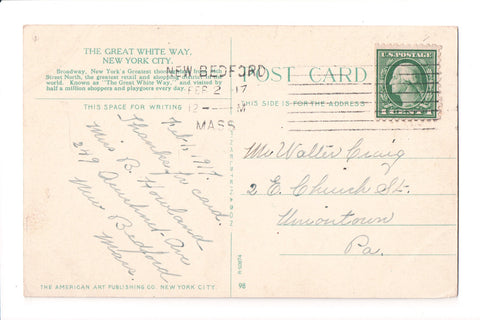 THE GREAT WHITE WAY,
NEW YORK CITY.
Broadway, New York's Greatest
Street North, the greatest retail and shopping
world. Known as "The Great White Way," and visited by
half a million shoppers and playgoers every day.
THIS SPACE FOR WRITING
Feb. 1, 1917.
Thanks for card.
Miss B. Howland
249 Acushnet Ave
New Bedford
Mass.
THE AMERICAN ART PUBLISHING CO. NEW YORK CITY.
NEW BEDFORD
FEB 2 17
12 M
MASS.
POST CARD
THIS SIDE IS FOR THE ADDRESS
U.S. POSTAGE
1 CENT 1
Mr Walter Craig
2 E. Church St.
Uniontown
Pa.
98